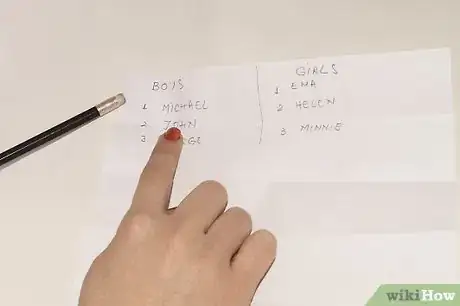 BOYS
1 MICHAEL
2 JOHN
3
GIRLS
1 EMA
2 HELEN
3 MINNIE
wikiHow